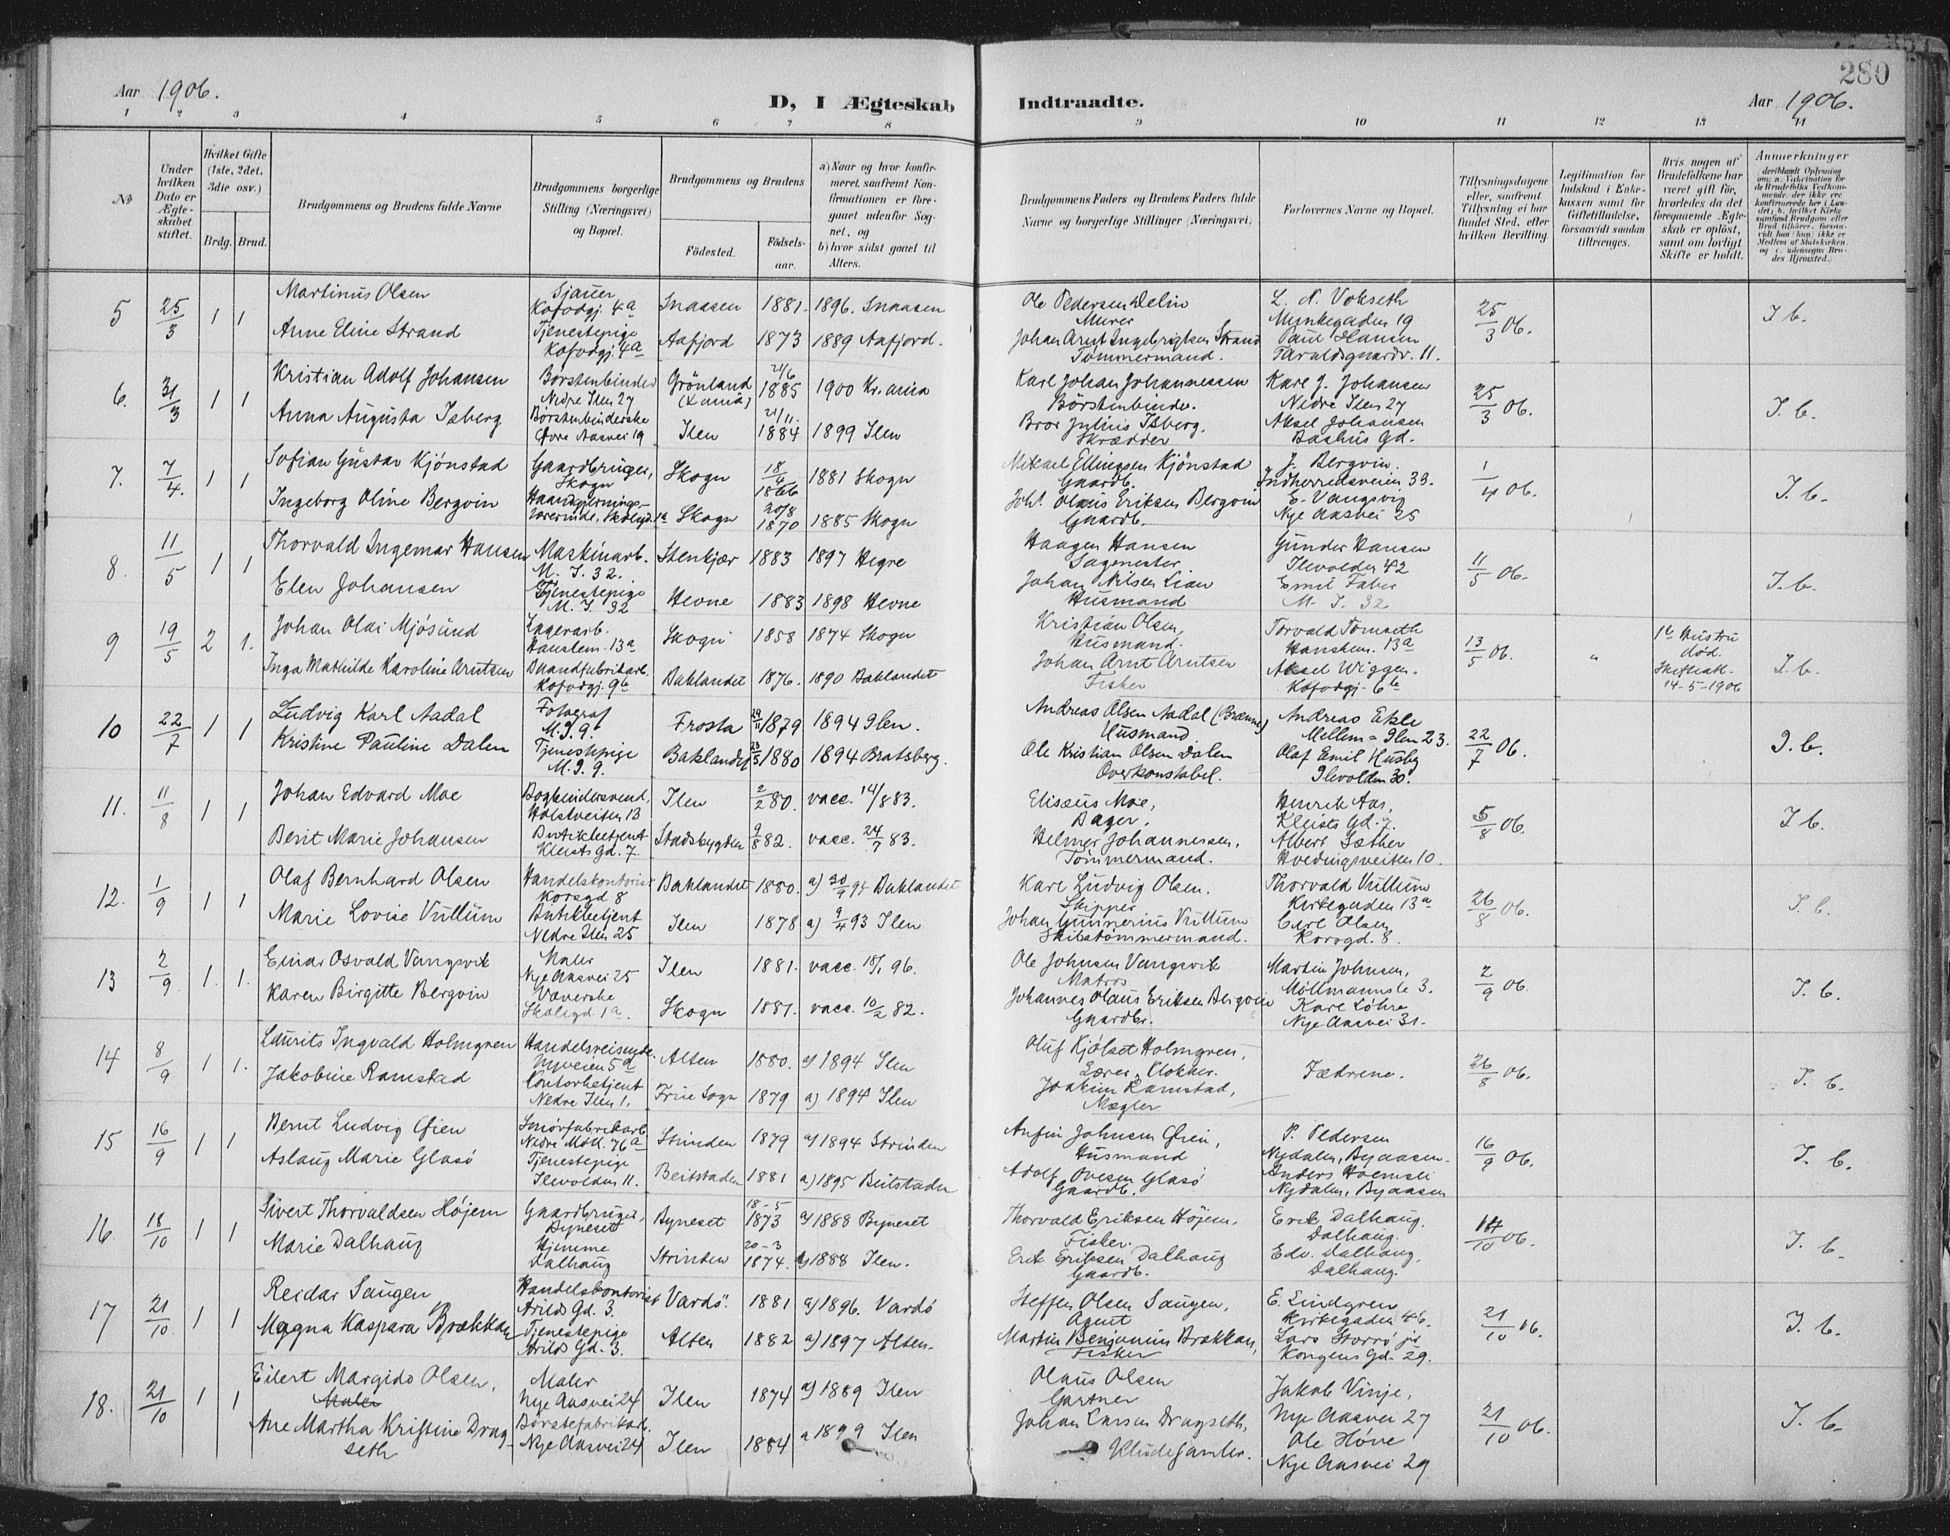 280
Aar 1906.
D, I Ægteskab Indtraadte.
Aar 1906.
1 2 3 4 5 6 7 8 9 10 11 12 13 14
No
Under hvilken Dato er Ægteskabet stiftet.
Hvilket Gifte (1ste, 2det, 3die osv.)
Brdg. Brud.
Brudgommens og Brudens fulde Navne
Brudgommens borgerlige Stilling (Næringsvei) og Bopæl.
Brudgommens og Brudens
Fødested. Fødselsaar.
a) Naar og hvor konfirmeret, saafremt Konfirmationen er foregaaet udenfor Sognet, og
b) hvor sidst gaaet til Alters.
Brudgommens Faders og Brudens Faders fulde Navne og borgerlige Stillinger (Næringsvei.)
Forlovernes Navne og Bopæl.
Tillysningsdagene eller, saafremt Tillysning ei har fundet Sted, efter hvilken Bevilling.
Legitimation for Indskud i Enkekassen samt for Giftetilladelse, forsaavidt saadan tiltrænges.
Hvis nogen af Brudefolkene har været gift før, hvorledes da det foregaaende Ægteskab er opløst, samt om lovligt Skifte er holdt.
Anmerkninger
5 25/3 1 1 Martinus Olsen Sjauer Kofodgj. 4a Snaasen 1881. 1896. Snaasen Ole Pedersen Delin Murer L. N. Vokseth Munkegaden 19 25/3 06. I b.
Anne Eline Strand Tjenestepige Kofodgj. 4a Aafjord 1873 1889 Aafjord. Johan Arnt Ingebrigtsen Strand Tømmermand. Paul Hansen Taraldsgaardv. 11.
6. 31/3 1 1 Kristian Adolf Johansen Børstenbinder Nedre Ilen 27 Grønland (Xania) 21/6 1885 1900 Kr.ania Karl Johan Johannessen Børstenbinder. Karl J. Johansen Nedre Ilen 27 25/3 06. I. b.
Anna Augusta Isberg Børstenbinderske Øvre Aasvei 19 Ilen 21/11. 1884 1899 Ilen Bror Julius Isberg, Skrædder Aksel Johansen Bashus Gd.
7. 7/4. 1 1 Sofian Gustav Kjønstad Gaardbruger, Skogn Skogn 18/4 1866 1881 Skogn Mikael Ellingsen Kjønstad Gaardb. J. Bergvin. Indherredsveien 33. 1/4 06. I. b.
Ingeborg Oline Bergvin Haandgjerningslærerinde, Skolegd. 1a Skogn 20/8 1870 1885 Skogn Johs. Olaus Eriksen Bergvin Gaardb. E. Vangsvig Nye Aasvei 25
8. 11/5 1 1 Thorvald Ingemar Hansen Maskinarb. M. I. 32. Stenkjær 1883 1897 Hegre Haagen Hansen Sagmester. Gunder Hansen Ilevolden 42 11/5 06. I. b.
Elen Johansen Tjenestepige M. I. 32 Hevne 1883 1898 Hevne Johan Nilsen Lian Husmand Emil Faber M. I. 32
9 19/5 2 1. Johan Olai Mjøsund Lagerarb. Hanstem. 13a Skogn 1858 1874 Skogn Kristian Olsen, Husmand. Torvald Tomseth Hanshem. 13a 13/5 06. " 1e Hustru død. Skifteatt. 14-5-1906 I. b.
Inga Mathilde Karoline Arntsen Kofodgj. 9b Baklandet 1876. 1890 Baklandet Johan Arnt Arntsen Fisker Aksel Wiggen. Kofodgj. 6b
10 22/7 1 1 Ludvig Karl Aadal Fotograf M. I. 9. Frosta 1879 1894 Ilen. Andreas Olsen Aadal Husmand Andreas Ekle Mellem-Ilen 23. 22/7 06. I. b.
Kristine Pauline Dalen Tjenestepige M. I. 9. Baklandet 23/5 1880 1894 Bratsberg. Ole Kristian Olsen Dalen Overkonstabel. Olaf Emil Husby Ilevolden 30.
11. 11/8 1 1 Johan Edvard Moe Bogbindersvend, Holstveiten 13 Ilen 2/2 80. vacc. 14/8 83. Elisæus Moe, Bager. Henrik Aas, Kleists Gd. 7. 5/8 06. I b.
Berit Marie Johansen Butikbetjent Kleists Gd. 7. Stadsbygden 9/8 82. vacc. 24/7 83. Helmer Johannessen, Tømmermand. Albert Sæther Hvedingsveiten 10.
12. 1/9 1 1 Olaf Bernhard Olsen Handelskontorist Korsgd 8 Baklandet 1880. a) 30/9 94 Baklandet Karl Ludvig Olsen. Skipper Thorvald Vullum Kirkegaden 13a 26/8 06. I. b.
Marie Lovise Vullum Butikbetjent Nedre Ilen 25 Ilen 1878 a) 9/4 93 Ilen Johan Gunnerius Vullum Skibstømmermand. Carl Olsen Korsgd. 8.
13 2/9. 1. 1. Einar Osvald Vangsvik Maler Nye Aasvei 25 Ilen 1881. vacc. 15/1 96. Ole Johnsen Vangsvik Matros Martin Johnsen, Møllmannsle 3. 2/9 06. I. b.
Karen Birgitte Bergvin Væverske Skolegd. 1a. Skogn 1881. vacc. 10/2 82. Johannes Olaus Eriksen Bergvin Gaardbr. Karl Løhre Nye Aasvei 31.
14 8/9 1 1. Laurits Ingvald Holmgren Handelsreisende. Nyveien 5a Alten 1880. a) 1894 Ilen Oluf Kjølset Holmgren, Lærer, Klokker. Fædrene. 26/8 06. I. b.
Jakobine Ramstad Kontorbetjent Nedre Ilen 1. Frue Sogn 1879 a) 1894 Ilen Joakim Ramstad, Mægler
15 16/9 1 1 Bernt Ludvig Øien Smørfabrikarb. Nedre Møll. 76a Strinden 1879 a) 1894 Strinden Anfin Johnsen Øien, Husmand P. Pedersen Nydalen, Byaasen. 16/9 06. I. b.
Aslaug Marie Glasø Tjenestepige Ilevolden 11. Beitstaden 1881 a) 1895 Beitstaden Adolf Ovesen Glasø Gaardb. Anders Holmsli Nydalen, Byaasen
16. 18/10 1 1 Sivert Thorvaldsen Højem Gaardbruger, Byneset Byneset 18-5 1873 a) 1888 Byneset Thorvald Eriksen Højem, Fisker. Erik Dalhaug. Dalhaug. 14/10 06. I. b.
Marie Dalhaug Hjemme Dalhaug Strinden 20-3 1874. a) 1888 Ilen. Erik Eriksen Dalhaug Gaardb. Edv. Dalhaug, Dalhaug.
17 21/10. 1 1 Reidar Saugen Handelskontorist Arilds Gd. 3. Vardø. 1881 a) 1896. Vardø Steffen Olsen Saugen, Agent E. Lindgren Kirkegaden 46. 21/10 06. I. b.
Magna Kaspara Brækkan Tjenestepige Arilds Gd. 3. Alten 1882 a) 1897 Alten. Martin Benjamin Brækkan, Fisker Lars Storrø jr Kongens Gd. 29.
18. 21/10 1 1 Eilert Margido Olsen, Maler Maler Nye Aasvei 24 Ilen 1874 a) 1889 Ilen Olaus Olsen Gartner Jakob Vinje, Nye Aasvei 27 21/10 06. I. b.
Ane Martha Kristine Dragseth Børstefabrikarb. Nye Aasvei 24 Ilen 1884 a 1899 Ilen Johan Larsen Dragseth, Kludesamler. Ole Høve Nye Aasvei 29